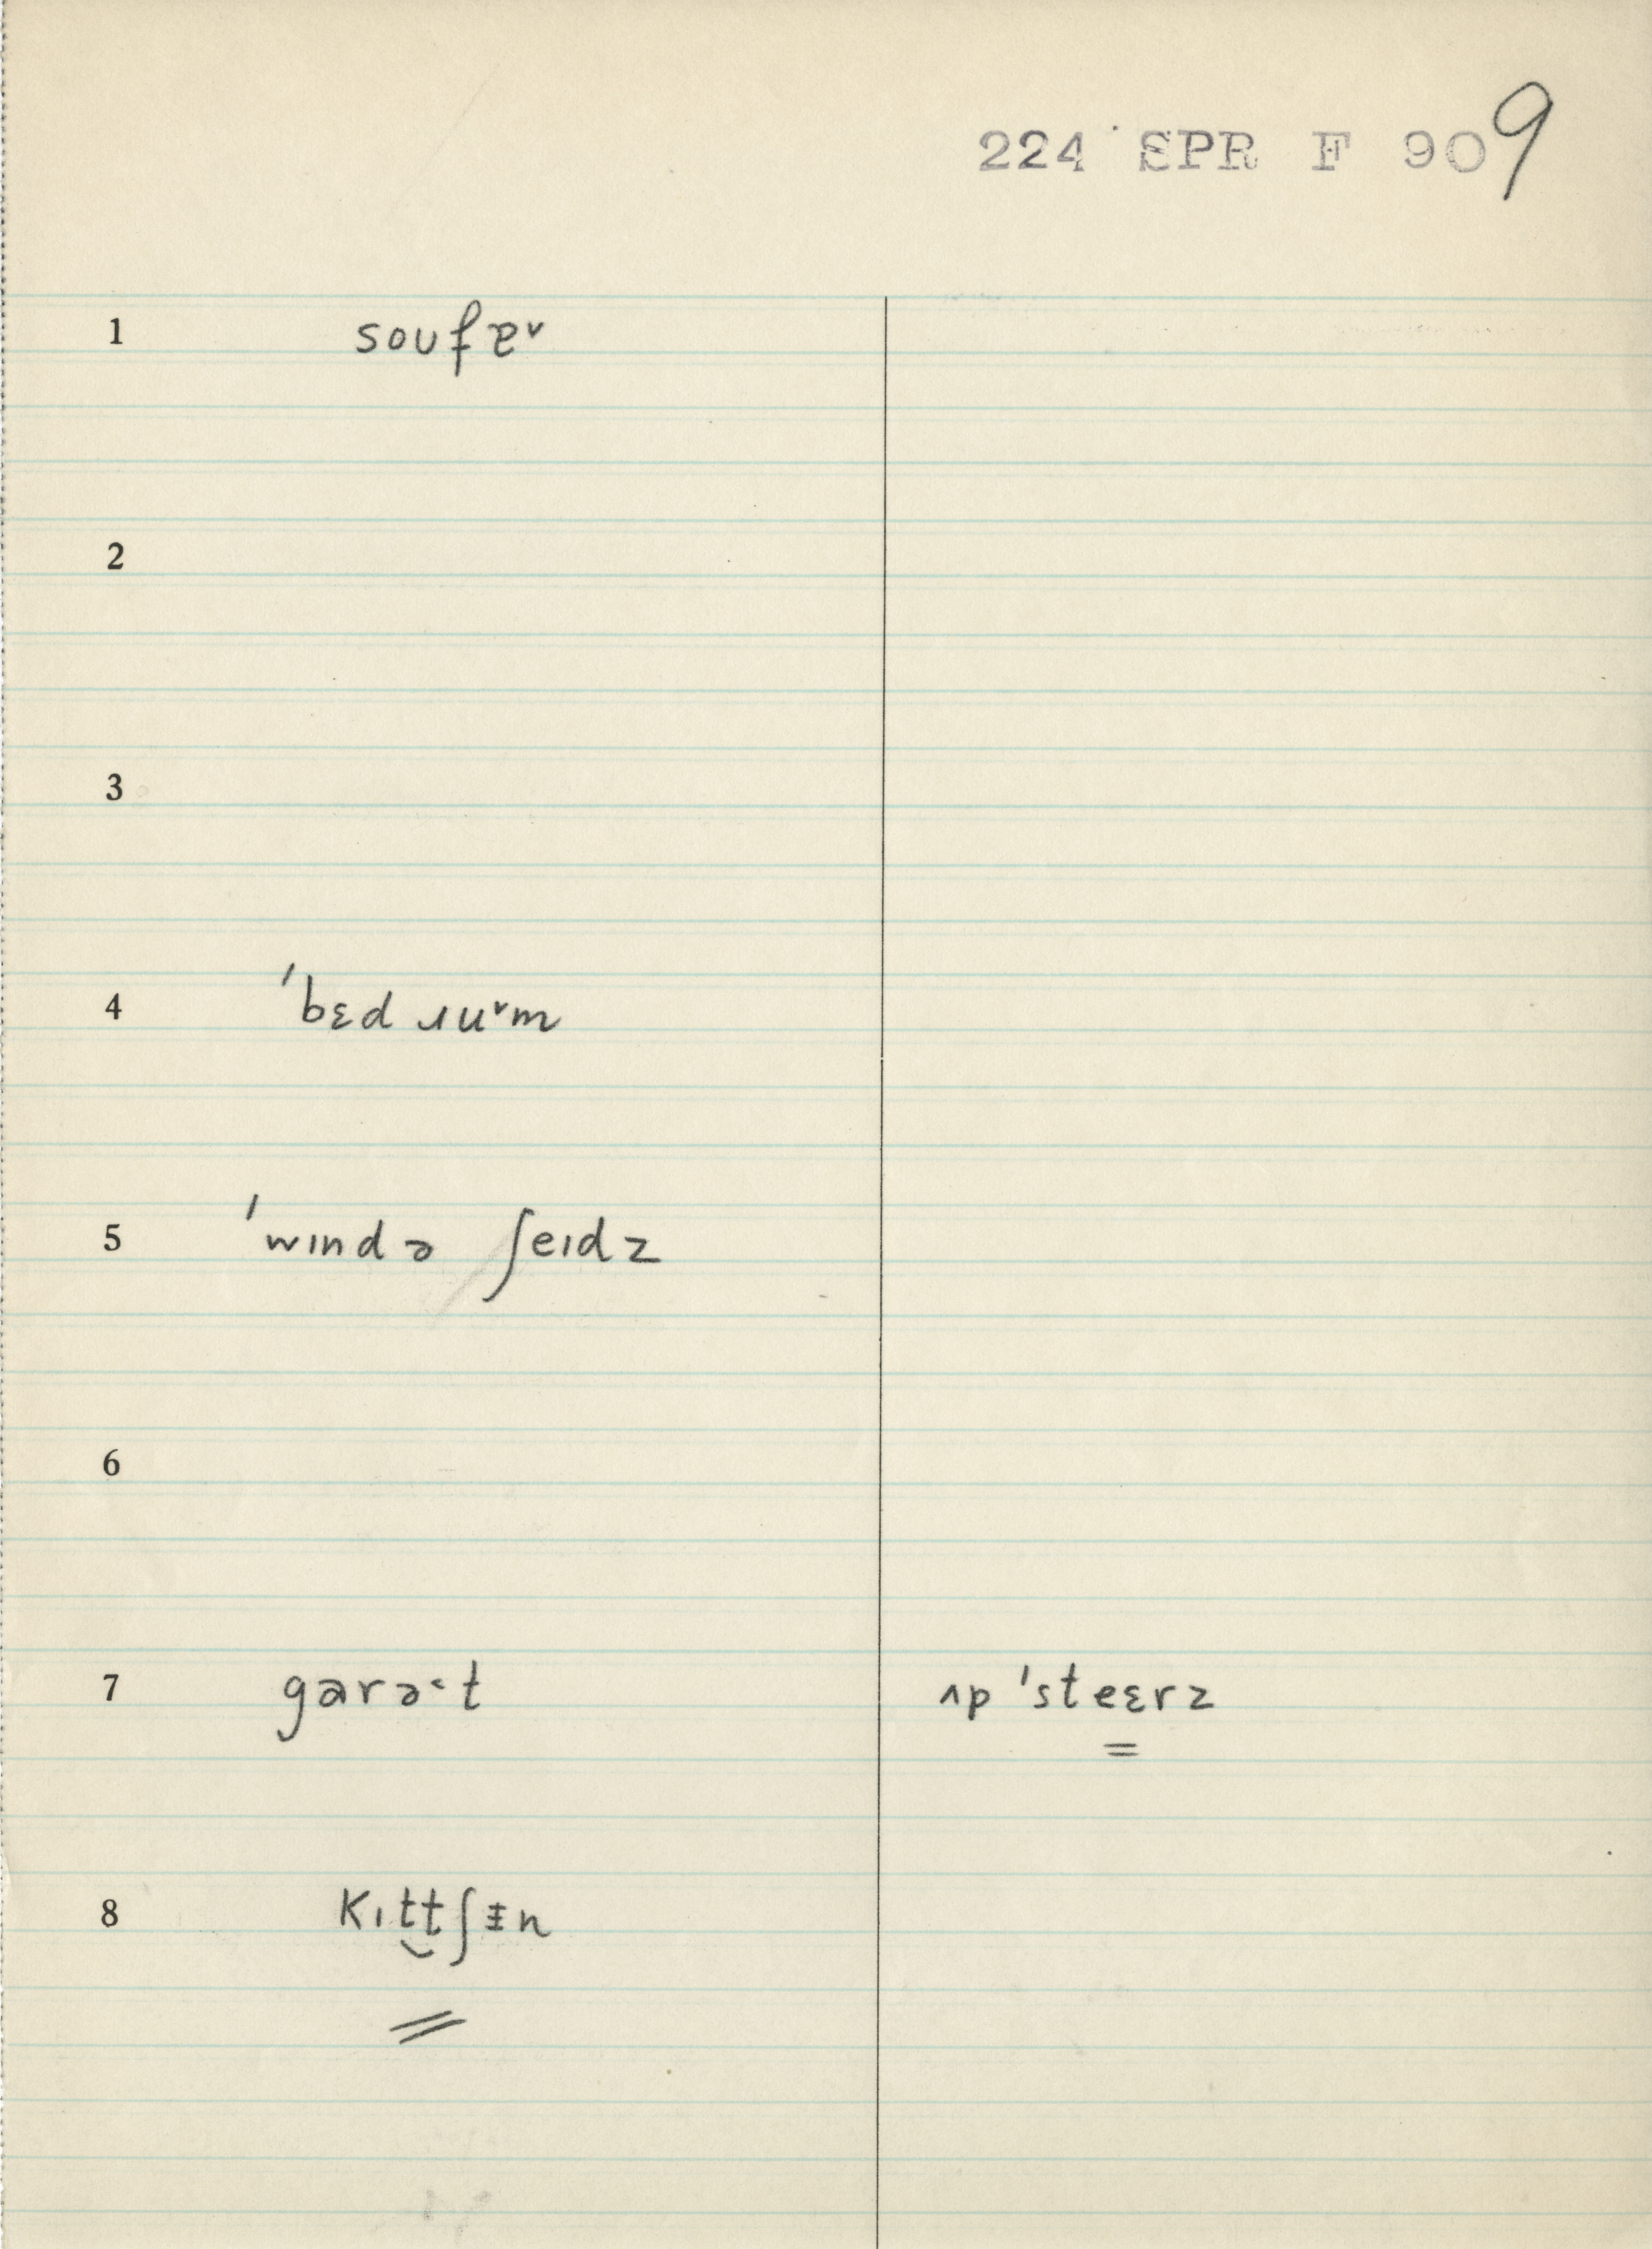 224 SPR F 909
1 soufɐ˅
2
3
4 ˈbɛd ɹu˅m
5 ˈwɪndə ʃeɪdz
6
7 garə˂t ʌp ˈsteɛrz
8 kɪt͜tʃɪ̵n